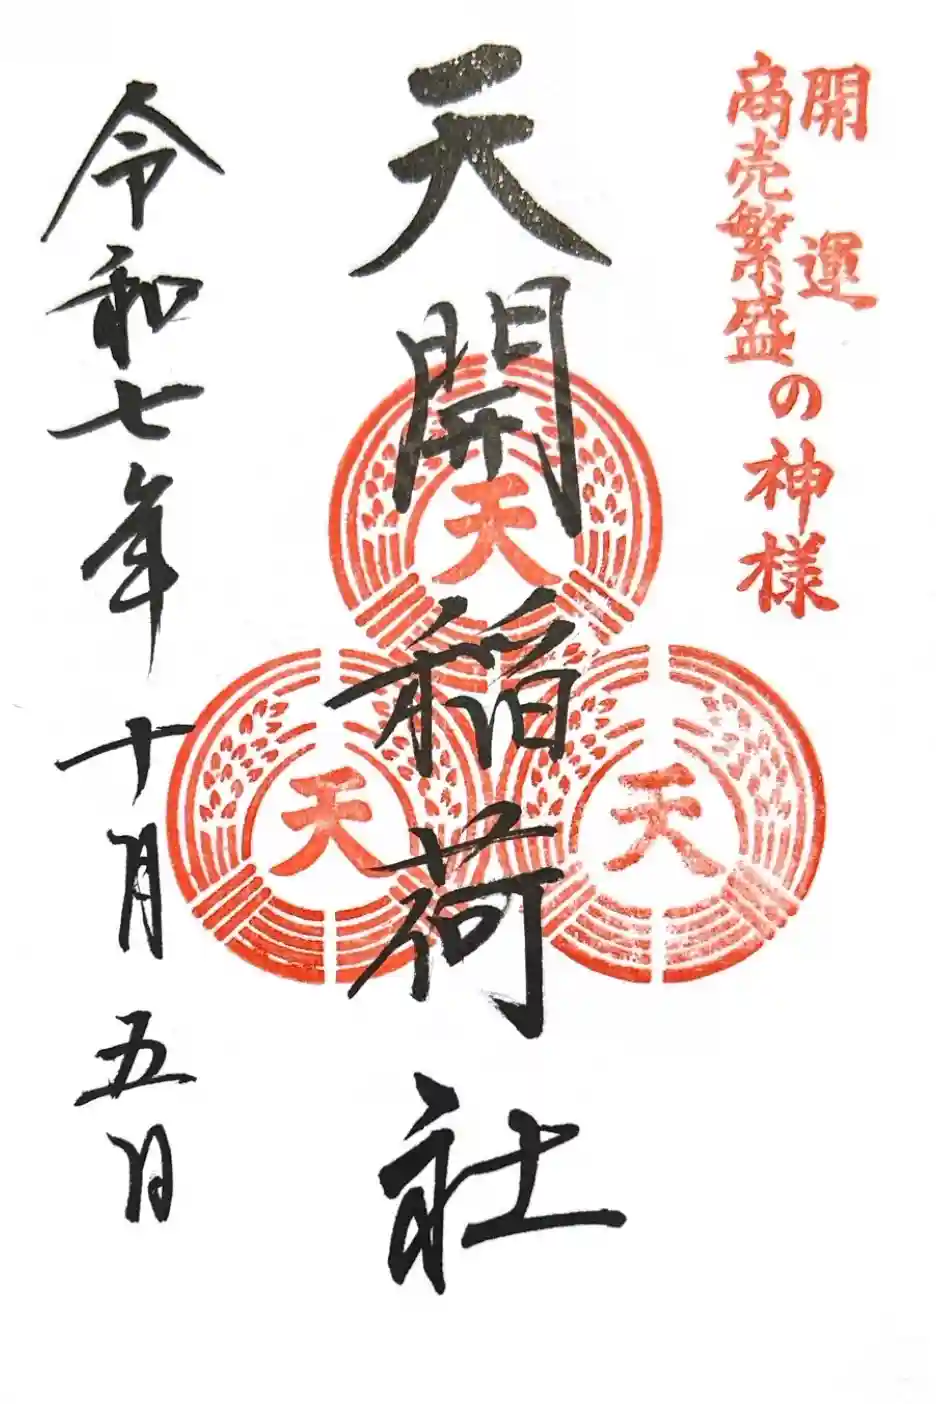 開運
商売繁盛
の神様
天開稲荷社
天
天
天
令和七年十月五日